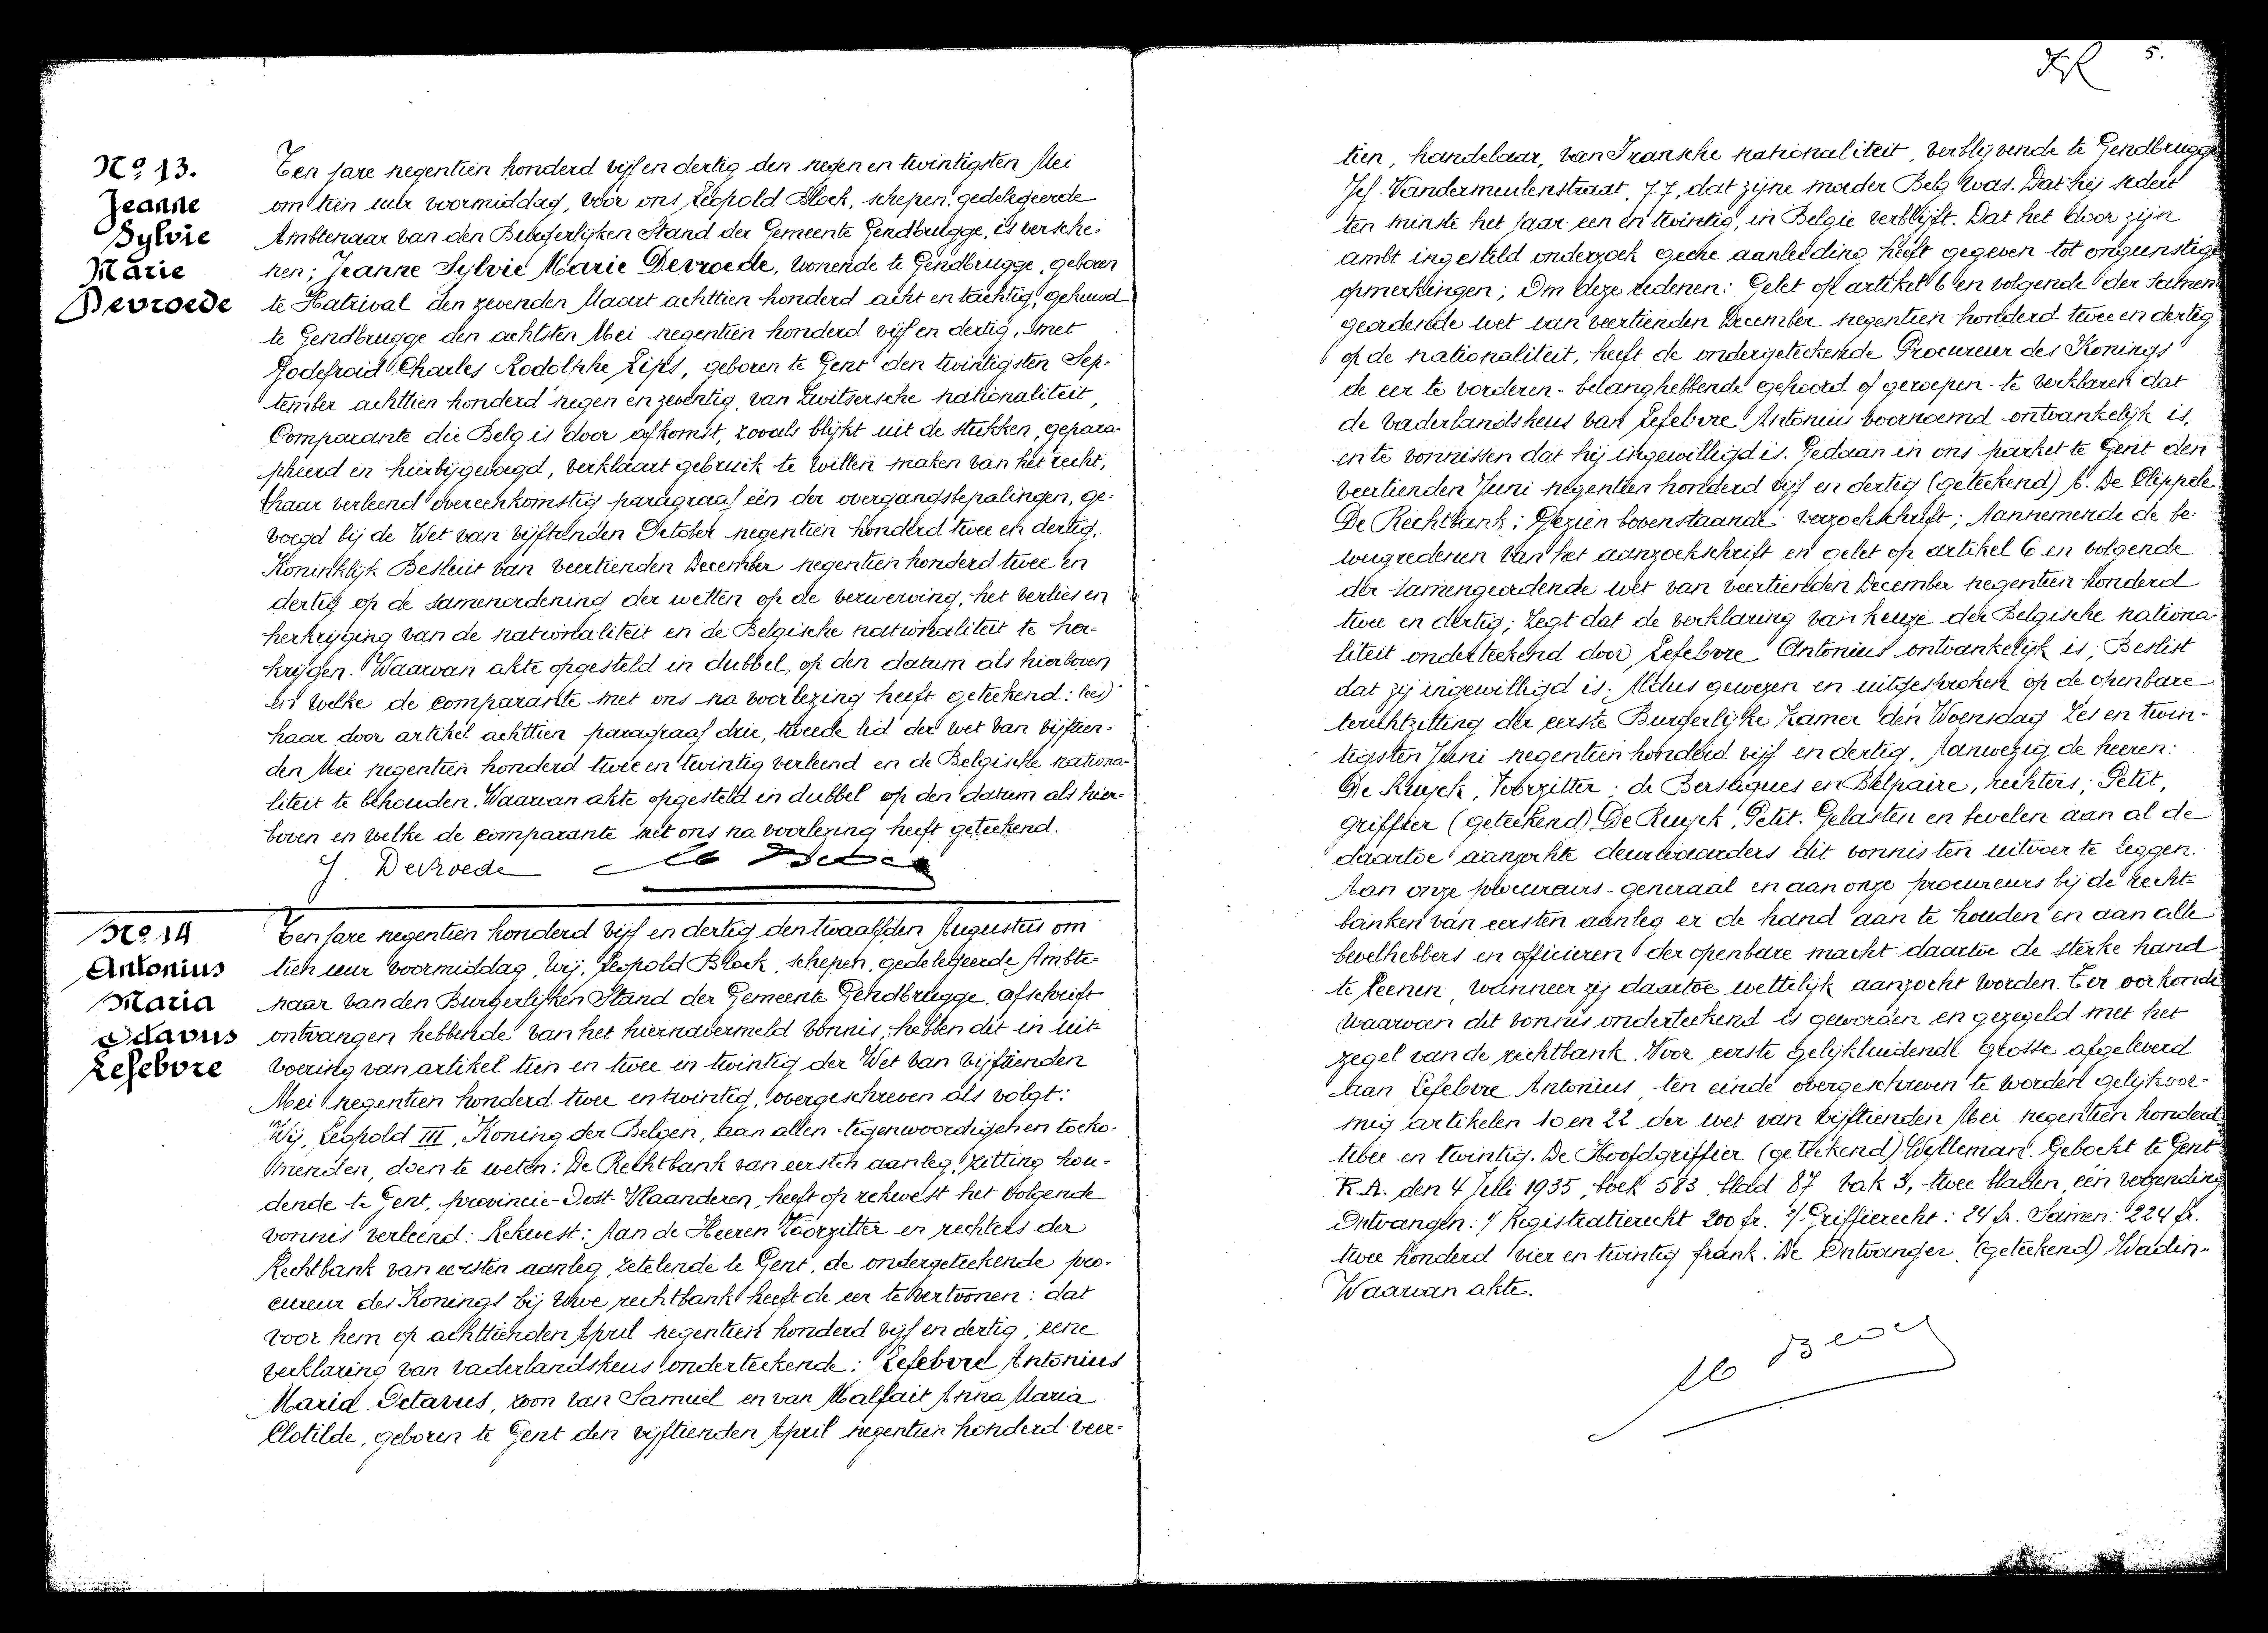 Nº 13.
Jeanne
Sylvie
Marie
Devroede
Ten jare negentien honderd vijf en dertig den negen en twintigsten Mei
om tien uur voormiddag, voor ons Leopold Block, schepen, gedelegeerde
Ambtenaar van den Burgerlijken Stand der Gemeente Gendbrugge, is versche-
nen; Jeanne Sylvie Marie Devroede, wonende te Gendbrugge, geboren
te Hatrival den zevenden Maart achttien honderd acht en tachtig, gehuwd
te Gendbrugge den achtsten Mei negentien honderd vijf en dertig, met
Godefroid Charles Rodolphe Lips, geboren te Gent den twintigsten Sep-
tember achttien honderd negen en zeventig, van Zwitsersche nationaliteit,
Comparante die Belg is door afkomst, zooals blijkt uit de stukken, gepara-
pheerd en hierbijgevoegd, verklaart gebruik te willen maken van het recht,
haar verleend overeenkomstig paragraaf één der overgangsbepalingen, ge-
voegd bij de Wet van vijftienden October negentien honderd twee en dertig,
Koninklijk Besluit van veertienden December negentien honderd twee en
dertig op de samenordening der wetten op de verwerving, het verlies en
herkrijging van de nationaliteit en de Belgische nationaliteit te her-
krijgen. Waarvan akte opgesteld in dubbel op den datum als hierboven
en welke de comparante met ons na voorlezing heeft geteekend: lees)
haar door artikel achttien paragraaf drie, tweede lid der wet van vijftien-
den Mei negentien honderd twee en twintig verleend en de Belgische nationa-
liteit te behouden. Waarvan akte opgesteld in dubbel op den datum als hier-
boven en welke de comparante met ons na voorlezing heeft geteekend.
J. Devroede
Nº 14
Antonius
Maria
Octavus
Lefebvre
Ten jare negentien honderd vijf en dertig den twaalfden Augustus om
tien uur voormiddag, Wij, Leopold Block, schepen, gedelegeerde Ambte-
naar van den Burgerlijken Stand der Gemeente Gendbrugge, afschrift
ontvangen hebbende van het hiernavermeld vonnis, hebben dit in uit-
voering van artikel tien en twee en twintig der Wet van vijftienden
Mei negentien honderd twee en twintig, overgeschreven als volgt:
Wij, Leopold III, Koning der Belgen, aan allen tegenwoordigen en toeko-
menden, doen te weten: De Rechtbank van eersten aanleg, zitting hou-
dende te Gent, provincie Oost-Vlaanderen, heeft op rekwest het volgende
vonnis verleend: Rekwest: Aan de Heeren Voorzitter en rechters der
Rechtbank van eersten aanleg, zetelende te Gent, de ondergeteekende pro-
cureur des Konings bij Uwe rechtbank heeft de eer te vertoonen: dat
voor hem op achttienden April negentien honderd vijf en dertig, eene
verklaring van vaderlandskeus onderteekende: Lefebvre Antonius
Maria Octavus, zoon van Samuel en van Malfait Anna Maria
Clotilde, geboren te Gent den vijftienden April negentien honderd veer-
5.
tien, handelaar, van Fransche nationaliteit, verblijvende te Gendbrugge
Jef. Vandermeulenstraat, 77, dat zijne moeder Belg was. Dat hij sedert
ten minste het jaar een en twintig, in Belgie verblijft. Dat het door zijn
ambt ingesteld onderzoek geene aanleiding heeft gegeven tot ongunstige
opmerkingen; Om deze redenen: Gelet op artikel 6 en volgende der samen
geordende wet van veertienden December negentien honderd twee en dertig
op de nationaliteit, heeft de ondergeteekende Procureur des Konings
de eer te vorderen - belanghebbende gehoord of geroepen - te verklaren dat
de vaderlandskeus van Lefebvre Antonius voornoemd ontvankelijk is,
en te vonnissen dat hij ingewilligd is. Gedaan in ons parket te Gent den
veertienden Juni negentien honderd vijf en dertig (geteekend) A. De Clippele
De Rechtbank: Gezien bovenstaande verzoekschrift; Aannemende de be-
weegredenen van het aanzoekschrift en gelet op artikel 6 en volgende
der samengeordende wet van veertienden December negentien honderd
twee en dertig; Zegt dat de verklaring van keuze der Belgische nationa-
liteit onderteekend door Lefebvre Antonius ontvankelijk is; Beslist
dat zij ingewilligd is; Aldus gewezen en uitgesproken op de openbare
terechtzitting der eerste Burgerlijke Kamer den Woensdag Zes en twin-
tigsten Juni negentien honderd vijf en dertig, Aanwezig de heeren:
De Ruyck, Voorzitter; de Bersaques en Belpaire, rechters; Petit,
griffier (geteekend) De Ruyck, Petit. Gelasten en bevelen aan al de
daartoe aanzochte deurwaarders dit vonnis ten uitvoer te leggen.
Aan onze procureurs-generaal en aan onze procureurs bij de recht-
banken van eersten aanleg er de hand aan te houden en aan alle
bevelhebbers en officieren der openbare macht daartoe de sterke hand
te leenen, wanneer zij daartoe wettelijk aanzocht worden. Ter oorkonde
waarvan dit vonnis onderteekend is geworden en gezegeld met het
zegel van de rechtbank. Voor eerste gelijkluidende grosse afgeleverd
aan Lefebvre Antonius, ten einde overgeschreven te worden gelijkvor-
mig artikelen 10 en 22 der wet van vijftienden Mei negentien honderd
twee en twintig. De Hoofdgriffier (geteekend) Wylleman. Geboekt te Gent
R.A. den 4 Juli 1935, boek 583, blad 87 vak 3, twee bladen, één verzending
Ontvangen: 1/ Registratierecht 200 fr. 2/ Griffierecht: 24 fr. Samen: 224 fr.
twee honderd vier en twintig frank. De Ontvanger, (geteekend) Wadin.
Waarvan akte.